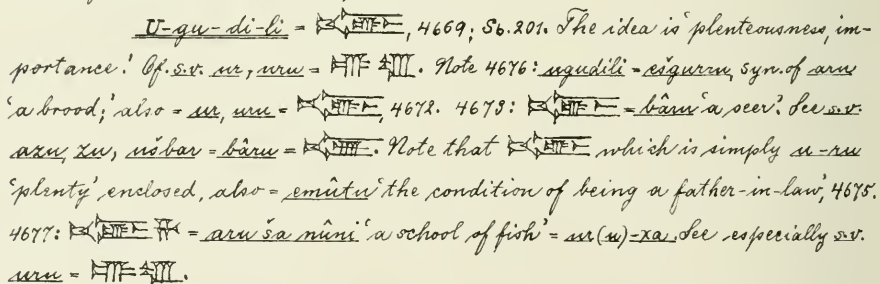 U-gu-di-li = , 4669; Sb. 201. The idea is 'plenteousness, im-
portance.' Cf. s.v. ur, uru = . Note 4676: ugudili = ešgurru, syn. of aru
'a brood;' also = ur, uru = , 4672. 4673: = bâru 'a seer.' See s.v.
azu, zu, ušbar = bâru = . Note that which is simply u-ru
'plenty' enclosed, also = emûtu 'the condition of being a father-in-law,' 4675.
4677: = aru ša nûni 'a school of fish' = ur(u)-xa. See especially s.v.
uru = .